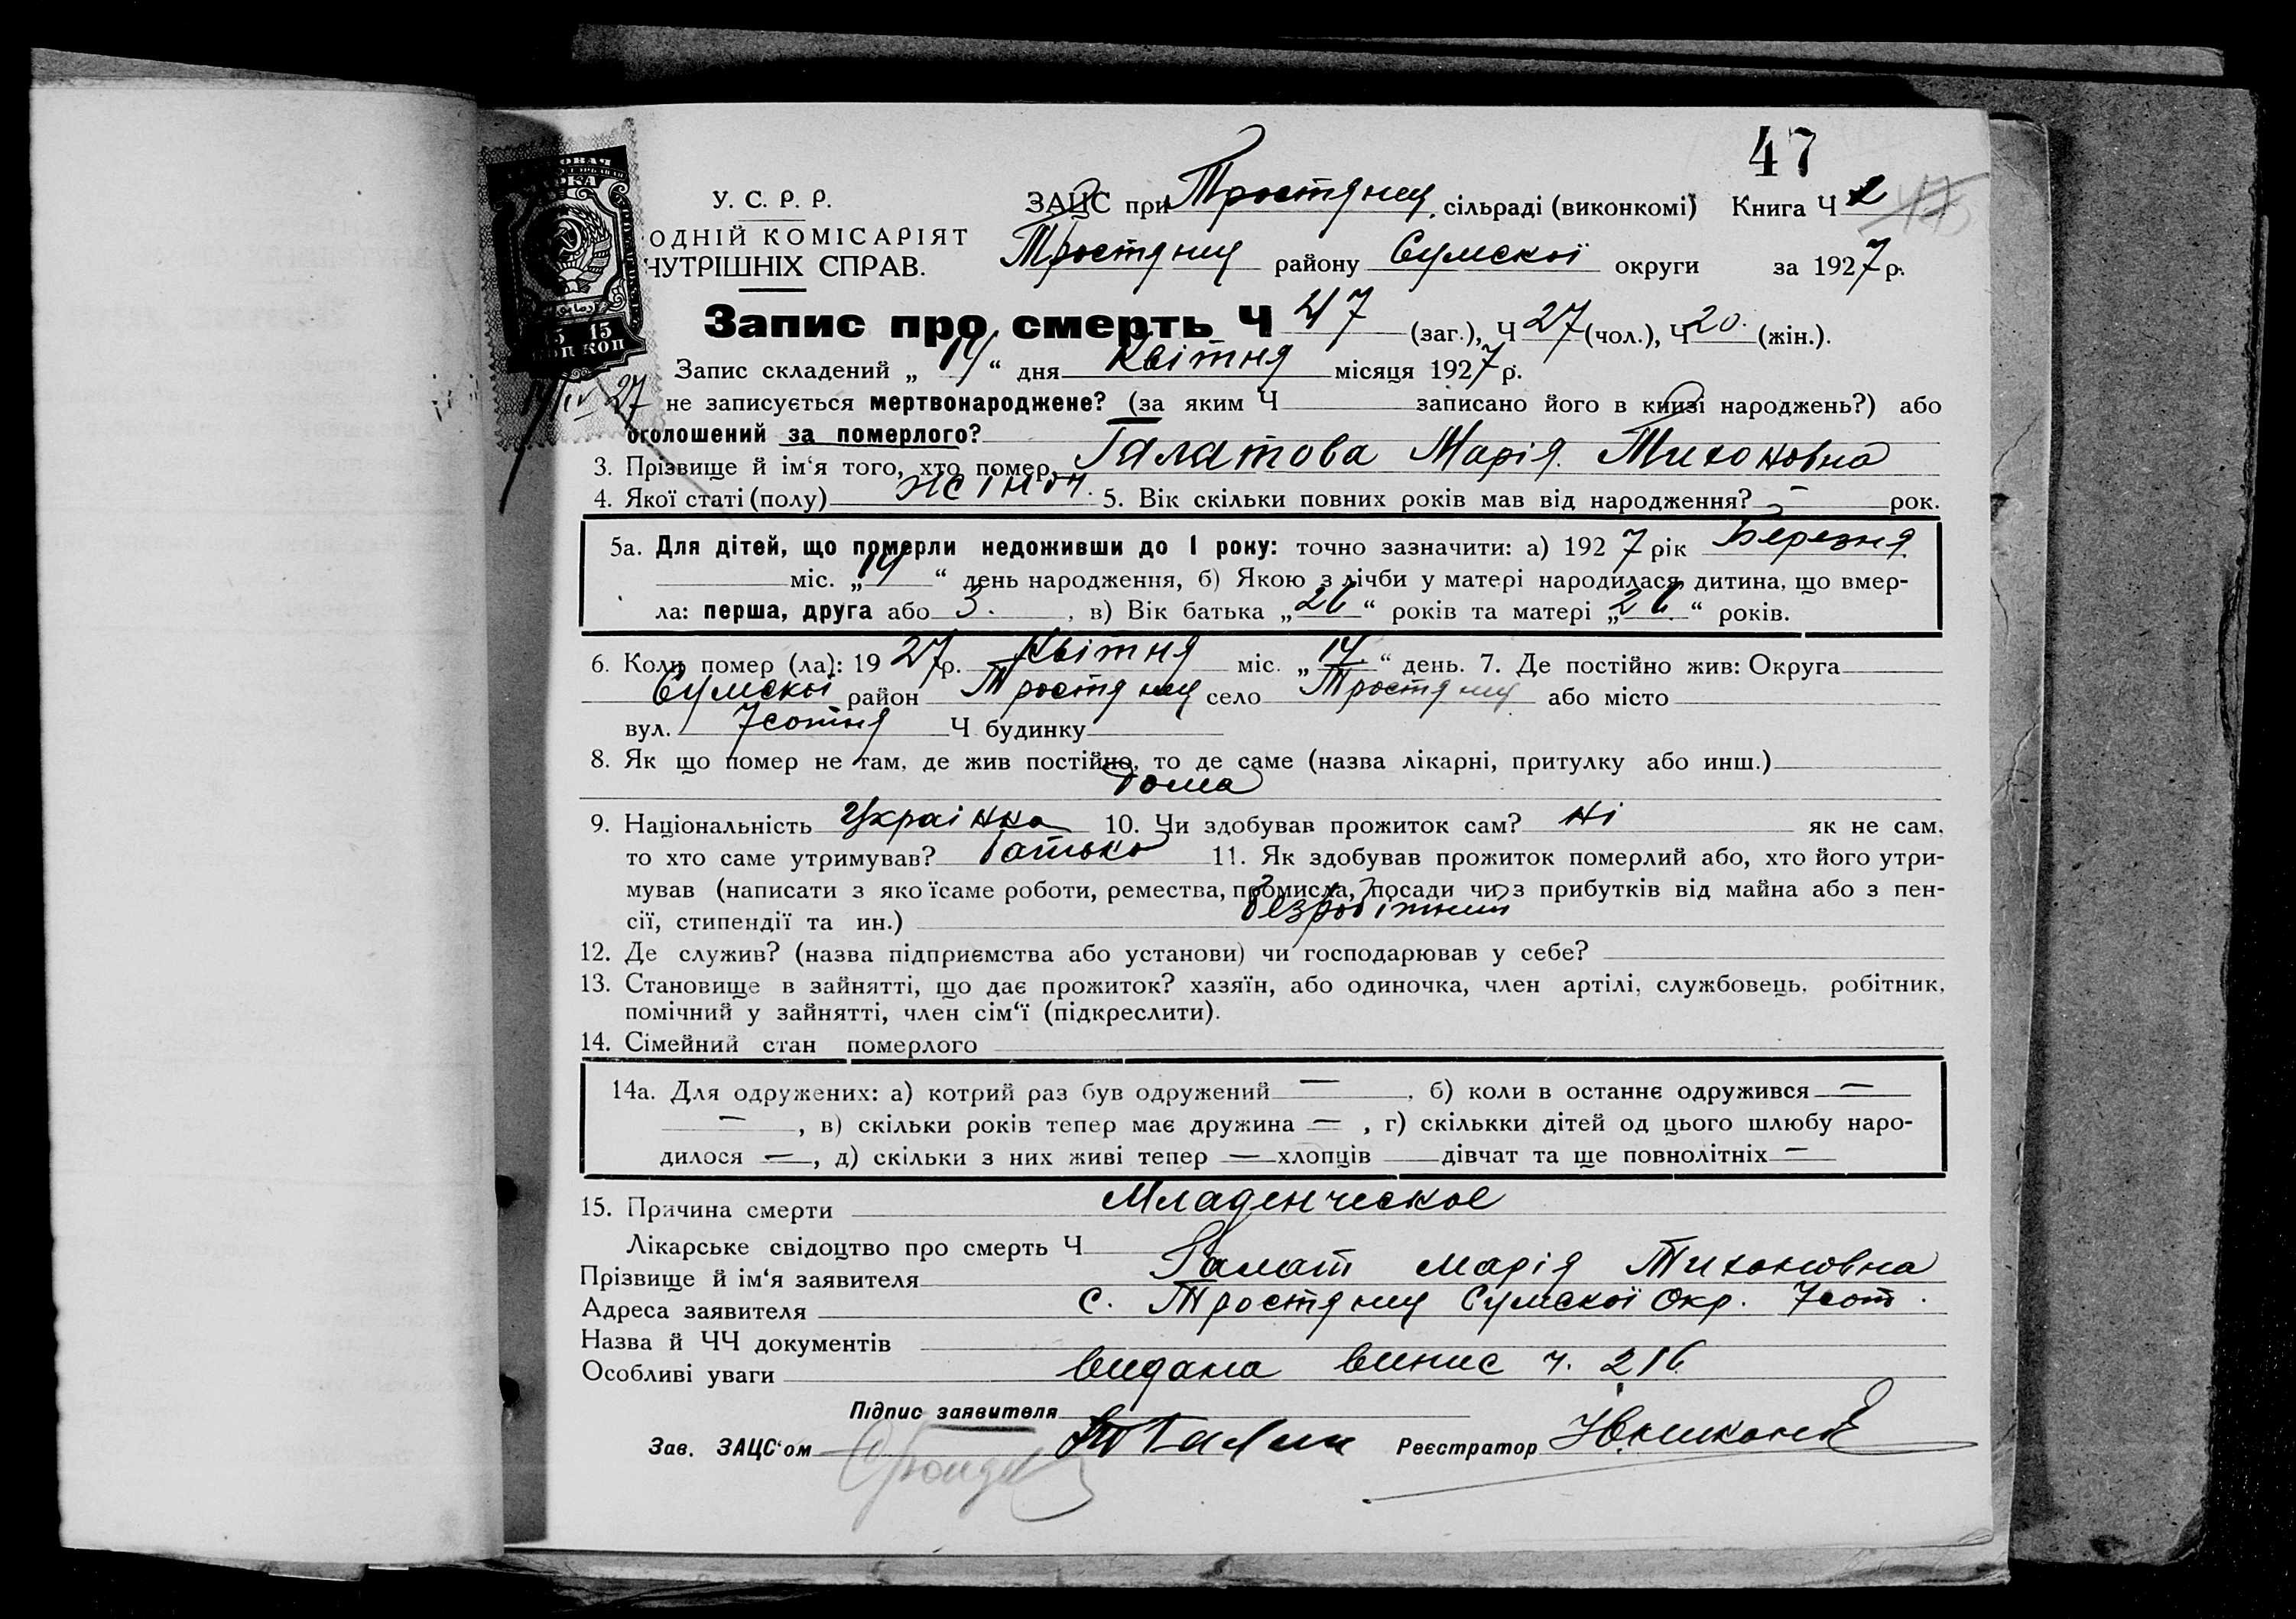 47
У. С. Р. Р.
ЗАЦС при Тростянец. сільраді (виконкомі) Книга Ч 2 47
ОДНІЙ КОМІСАРІЯТ
Тростянец району Сумскої округи за 1927 р.
НУТРІШНІХ СПРАВ.
15 15
КОП КОП
Запис про смерть Ч 47 (заг.), Ч 27 (чол.), Ч 20. (жін.).
Запис складений „ 14 “ дня Квітня місяця 1927 р.
14/IV 27 не записується мертвонароджене? (за яким Ч записано його в книзі народжень?) або
оголошений за померлого?
3. Прізвище й ім‘я того, хто помер, Галатова Марія Тихоновна
4. Якої статі (полу) жіноч. 5. Вік скільки повних років мав від народження? – рок.
5а. Для дітей, що померли недоживши до 1 року: точно зазначити: а) 1927 рік Березня
міс. „ 14 “ день народження, б) Якою з лічби у матері народилася дитина, що вмер-
ла: перша, друга або 3. , в) Вік батька „ 26 “ років та матері „ 26 “ років.
6. Коли помер (ла): 1927 р. Квітня міс. „ 14. “ день. 7. Де постійно жив: Округа
Сумскої район Тростянец село Тростянец або місто
вул. 7 сотня Ч будинку
8. Як що помер не там, де жив постійно, то де саме (назва лікарні, притулку або инш.)
Дома
9. Національність Українка 10. Чи здобував прожиток сам? Ні як не сам,
то хто саме утримував? батько 11. Як здобував прожиток померлий або, хто його утри-
мував (написати з якоїсаме роботи, ремества, промисла, посади чи з прибутків від майна або з пен-
сії, стипендії та ин.) безробітний
12. Де служив? (назва підприємства або установи) чи господарював у себе?
13. Становище в зайнятті, що дає прожиток? хазяїн, або одиночка, член артілі, службовець, робітник,
помічний у зайнятті, член сім‘ї (підкреслити).
14. Сімейний стан померлого
14а. Для одружених: а) котрий раз був одружений — , б) коли в останнє одружився —
— , в) скільки років тепер має дружина — , г) скількки дітей од цього шлюбу наро-
дилося — , д) скільки з них живі тепер — хлопців дівчат та ще повнолітніх —
15. Причина смерти Младенческое
Лікарське свідоцтво про смерть Ч
Прізвище й ім‘я заявителя Галат Марія Тихоновна
Адреса заявителя с. Тростянец Сумскої Окр. 7 сот.
Назва й ЧЧ документів
Особливі уваги видана випис ч. 216
Підпис заявителя
Зав. ЗАЦС‘ом Реєстратор